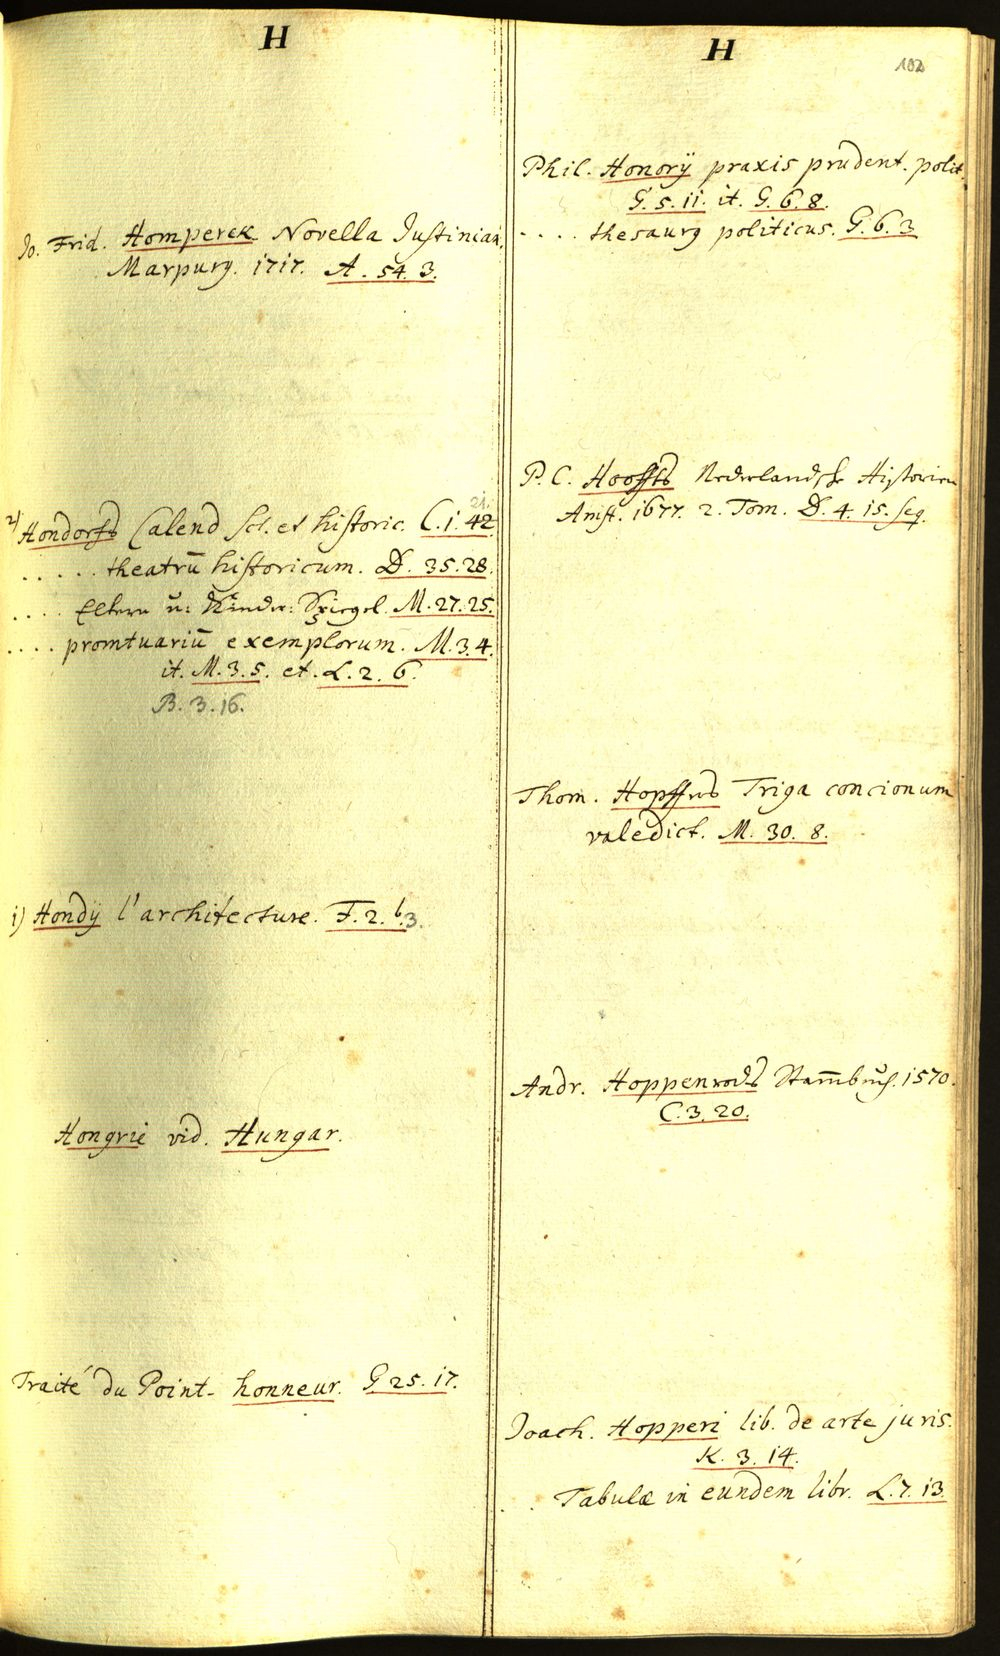 H
Jo. Frid. Homperek Novella Justinian.
Marpurg. 1717. A. 54. 3.
2) Hondorfs Calend Sct. et historic. C. 1. 42. 21.
..... theatrū historicum. D. 35. 28.
.... Eltern u: Kinder: Spiegel. M. 27. 25.
.... promtuariū exemplorum. M. 3. 4.
it. M. 3. 5. et. L. 2. 6.
B. 3. 16.
1) Hondÿ l'architecture. F. 2. 6. 3.
Hongrie vid. Hungar.
Traité du Point-honneur. G. 25. 17.
H
102
Phil. Honorÿ praxis prudent. polit.
G. 5. 11. it. G. 6. 8.
.... thesaurg politicus. G. 6. 3
P. C. Hooffts Nederlandsche Historien
Amst. 1677. 2. Tom. D. 4. 15. seq.
Thom. Hopffers Triga concionum
valedict. M. 30. 8.
Andr. Hoppenrods Stam̄buch. 1570.
C. 3. 20.
Joach. Hopperi lib. de arte juris.
K. 3. 14.
. . Tabulæ in eundem libr. L. 7. 13.